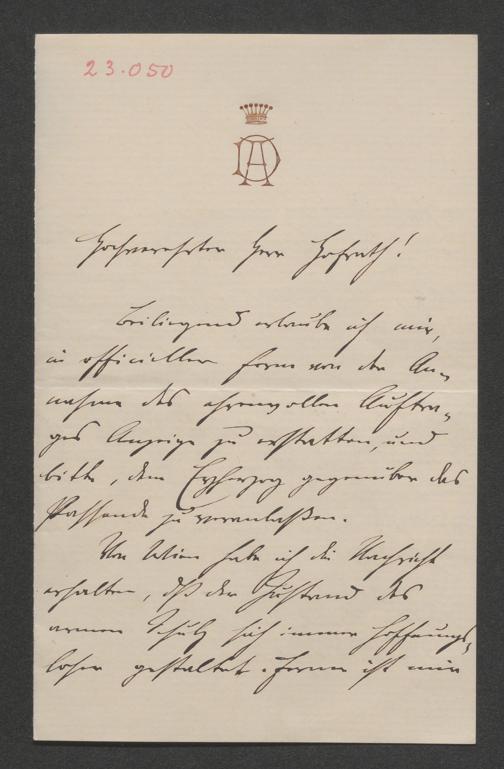 23.050
Hochverehrter Herr Hofrath!
Beiliegend erlaube ich mir,
in officieller Form von der An-
nahme des ehrenvollen Auftra-
ges Anzeige zu erstatten, und
bitte, dem Erzherzog gegenüber das
Passende zu veranlaßen.
Von Wien habe ich die Nachricht
erhalten, dß der Zustand des
armen Schulz sich immer hoffnungs-
loser gestaltet. Ferner ist mir